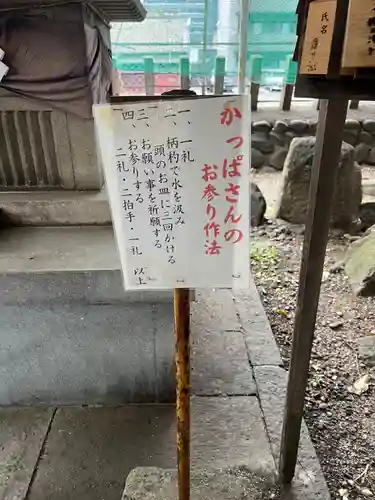 かっぱさんの
お参り作法
一、一礼
二、柄杓で水を汲み
頭のお皿に三回かける
三、お願い事を祈願する
四、お参りする
二礼・二拍手・一礼 以上
氏名